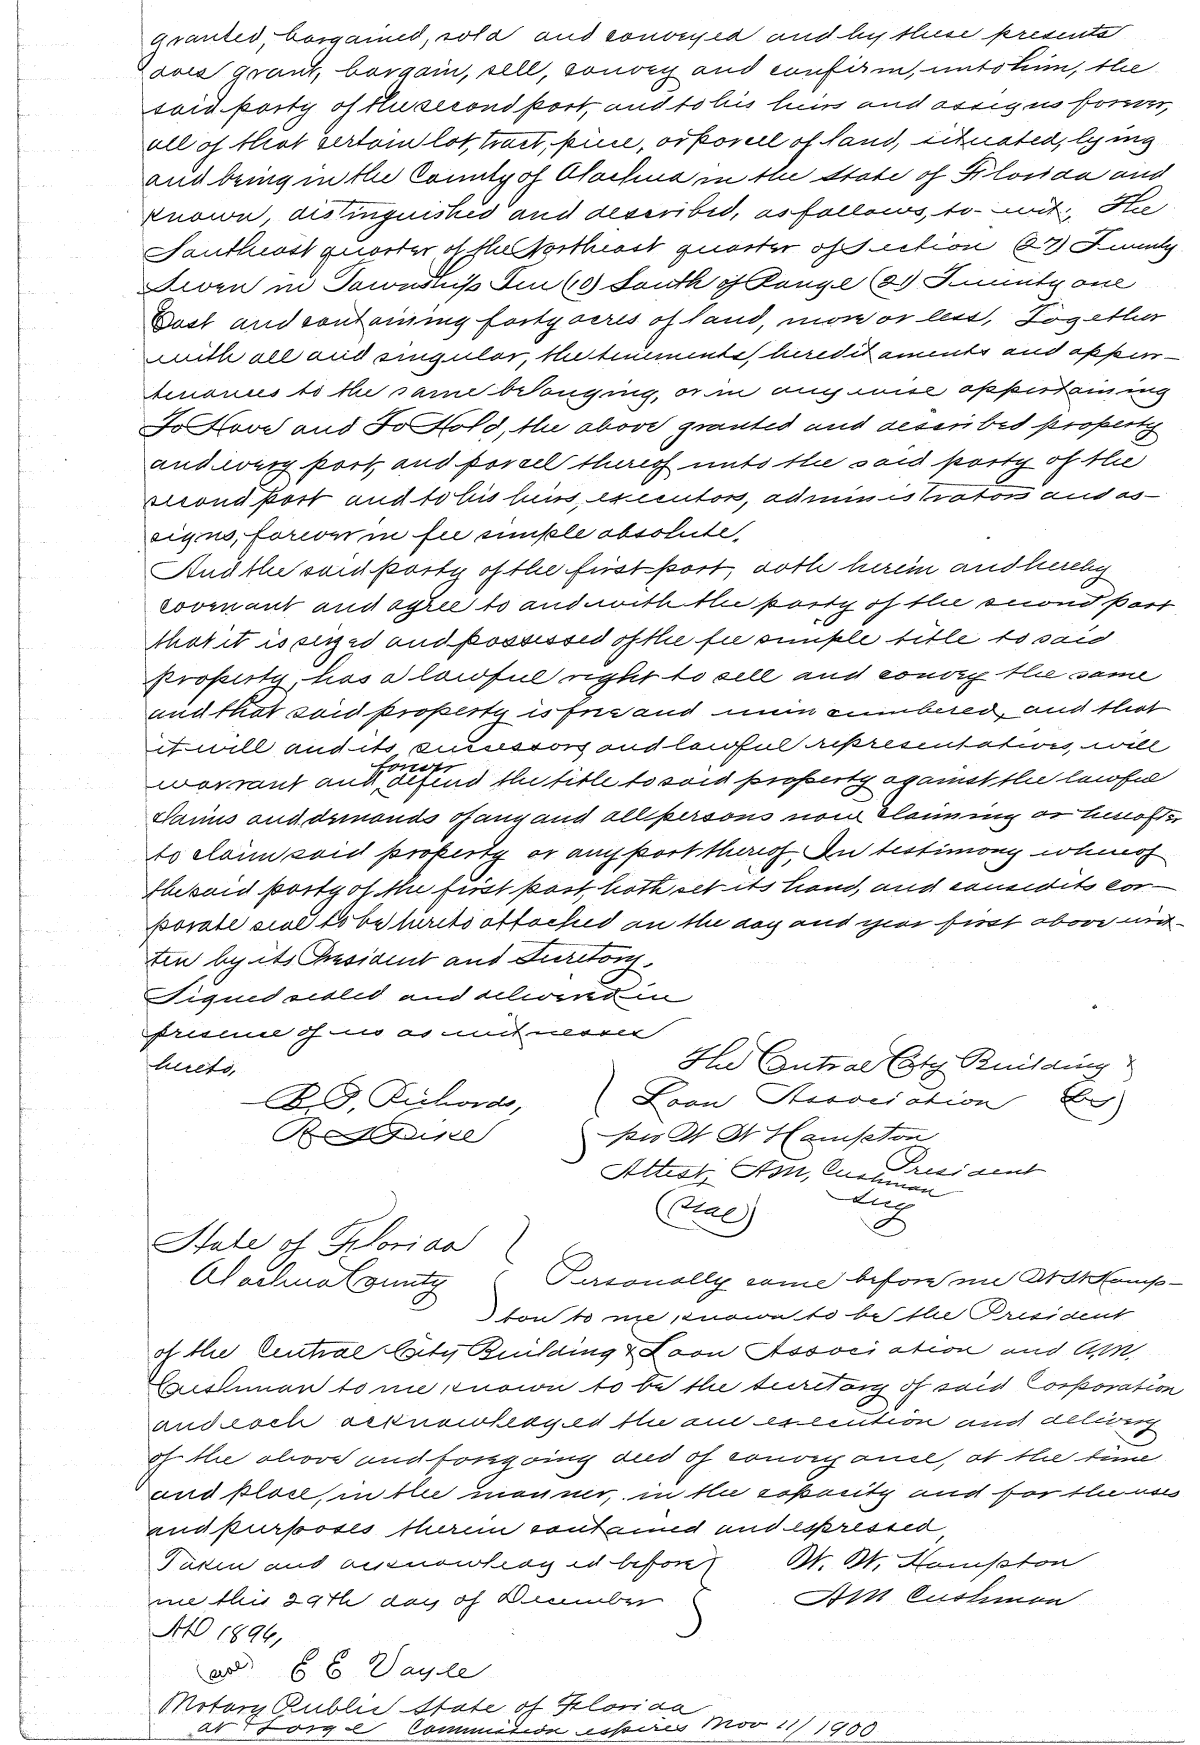 granted, bargained, sold and conveyed and by these presents
does grant, bargain, sell, convey and confirm, unto him, the
said party of the second part, and to his heirs and assigns forever,
all of that certain lot, tract, piece, or parcel of land, situated, lying
and being in the County of Alachua in the State of Florida and
known, distinguished and described, as follows, to-wit; The
Southeast quarter of the Northeast quarter of Section (27) Twenty
Seven in Township Ten (10) South of Range (21) Twenty one
East and containing forty acres of land, more or less, Together
with all and singular, the tenements, hereditaments and appur-
tenances to the same belonging, or in anywise appertaining
To Have and To Hold, the above granted and described property
and every part, and parcel thereof unto the said party of the
second part and to his heirs, executors, administrators and as-
signs, forever in fee simple absolute.
And the said party of the first part, doth herein and hereby
covenant and agree to and with the party of the second part
that it is seized and possessed of the fee simple title to said
property, has a lawful right to sell and convey the same
and that said property is free and unincumbered, and that
it will and its successors and lawful representatives, will
warrant and forever defend the title to said property against the lawful
claims and demands of any and all persons now claiming or hereafter
to claim said property or any part thereof, In testimony whereof
the said party of the first part, hath set its hand, and caused its cor-
porate seal to be hereto attached on the day and year first above writ-
ten by its President and Secretary.
Signed sealed and delivered in
presence of us as witnesses
hereto,
The Central City Building &
Loan Association
per W W Hampton
President
Attest, A.M, Cushman
Secy
(Seal)
Richards,
State of Florida
Alachua County
Personally came before me W W Hamp-
ton to me known to be the President
of the Central City Building & Loan Association and A.M.
Cushman to me known to be the Secretary of said Corporation
and each acknowledged the due execution and delivery
of the above and foregoing deed of conveyance, at the time
and place, in the manner, in the capacity and for the uses
and purposes therein contained and expressed,
Taken and acknowledged before
me this 29th day of December
AD 1896,
W. W. Hampton
AM Cushman
(seal) E E Voyle
Notary Public State of Florida
at Large Commission expires Nov 11/1900